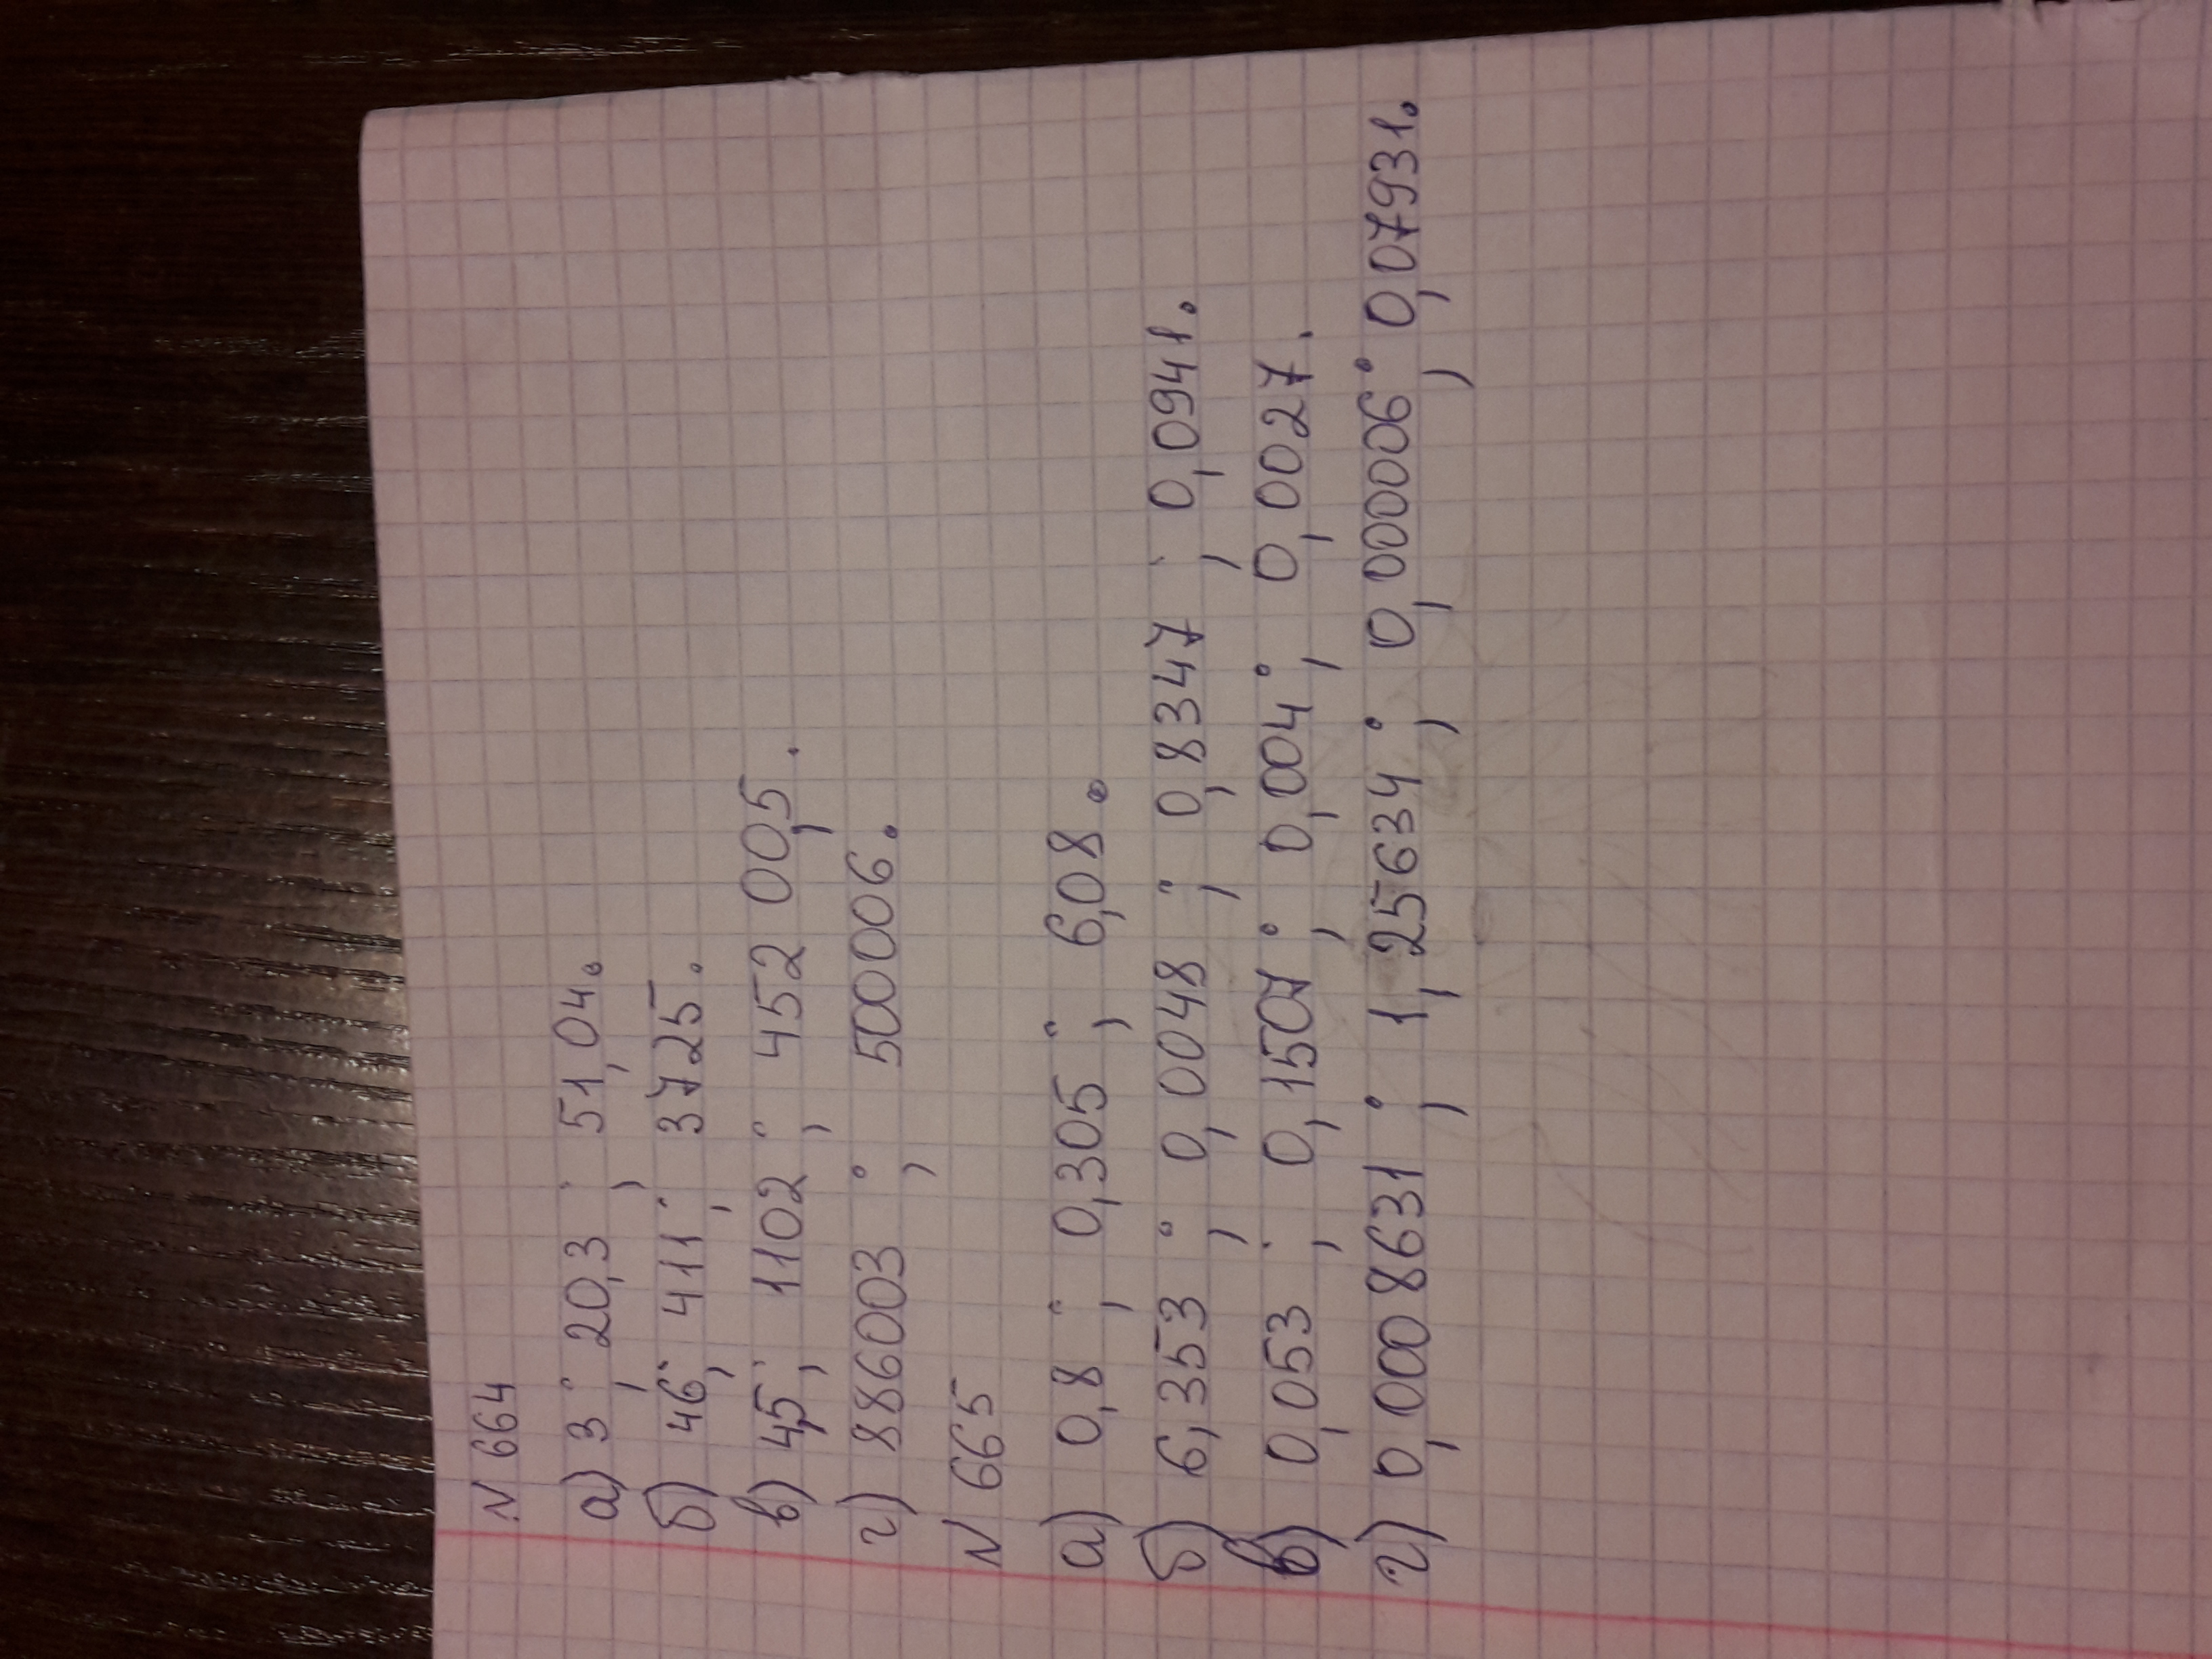 N 664
а) 3; 20,3; 51,04.
б) 46; 411; 3725.
в) 4,5; 1102; 452 00,5.
г) 886003; 500006.
N 665
а) 0,8; 0,305; 6,08.
б) 6,353; 0,0048; 0,8347; 0,0941.
в) 0,053; 0,1507; 0,004; 0,0027.
г) 0,0008631; 1,25634; 0,000006; 0,07931.